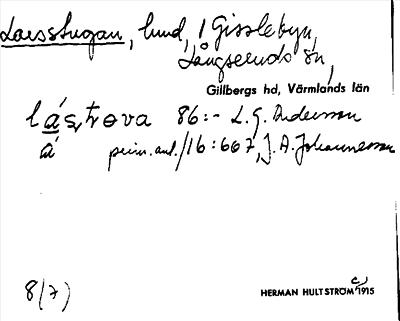 Larsstugan, lund, i Gisslebyn,
Långseruds sn,
Gillbergs hd, Värmlands län
lá̱s,tr̵ɵva 86:- L. G. Andersson
á prim. ant./16:667, J. A. Johannesson
8(7)
HERMAN HULTSTRÖM 1915